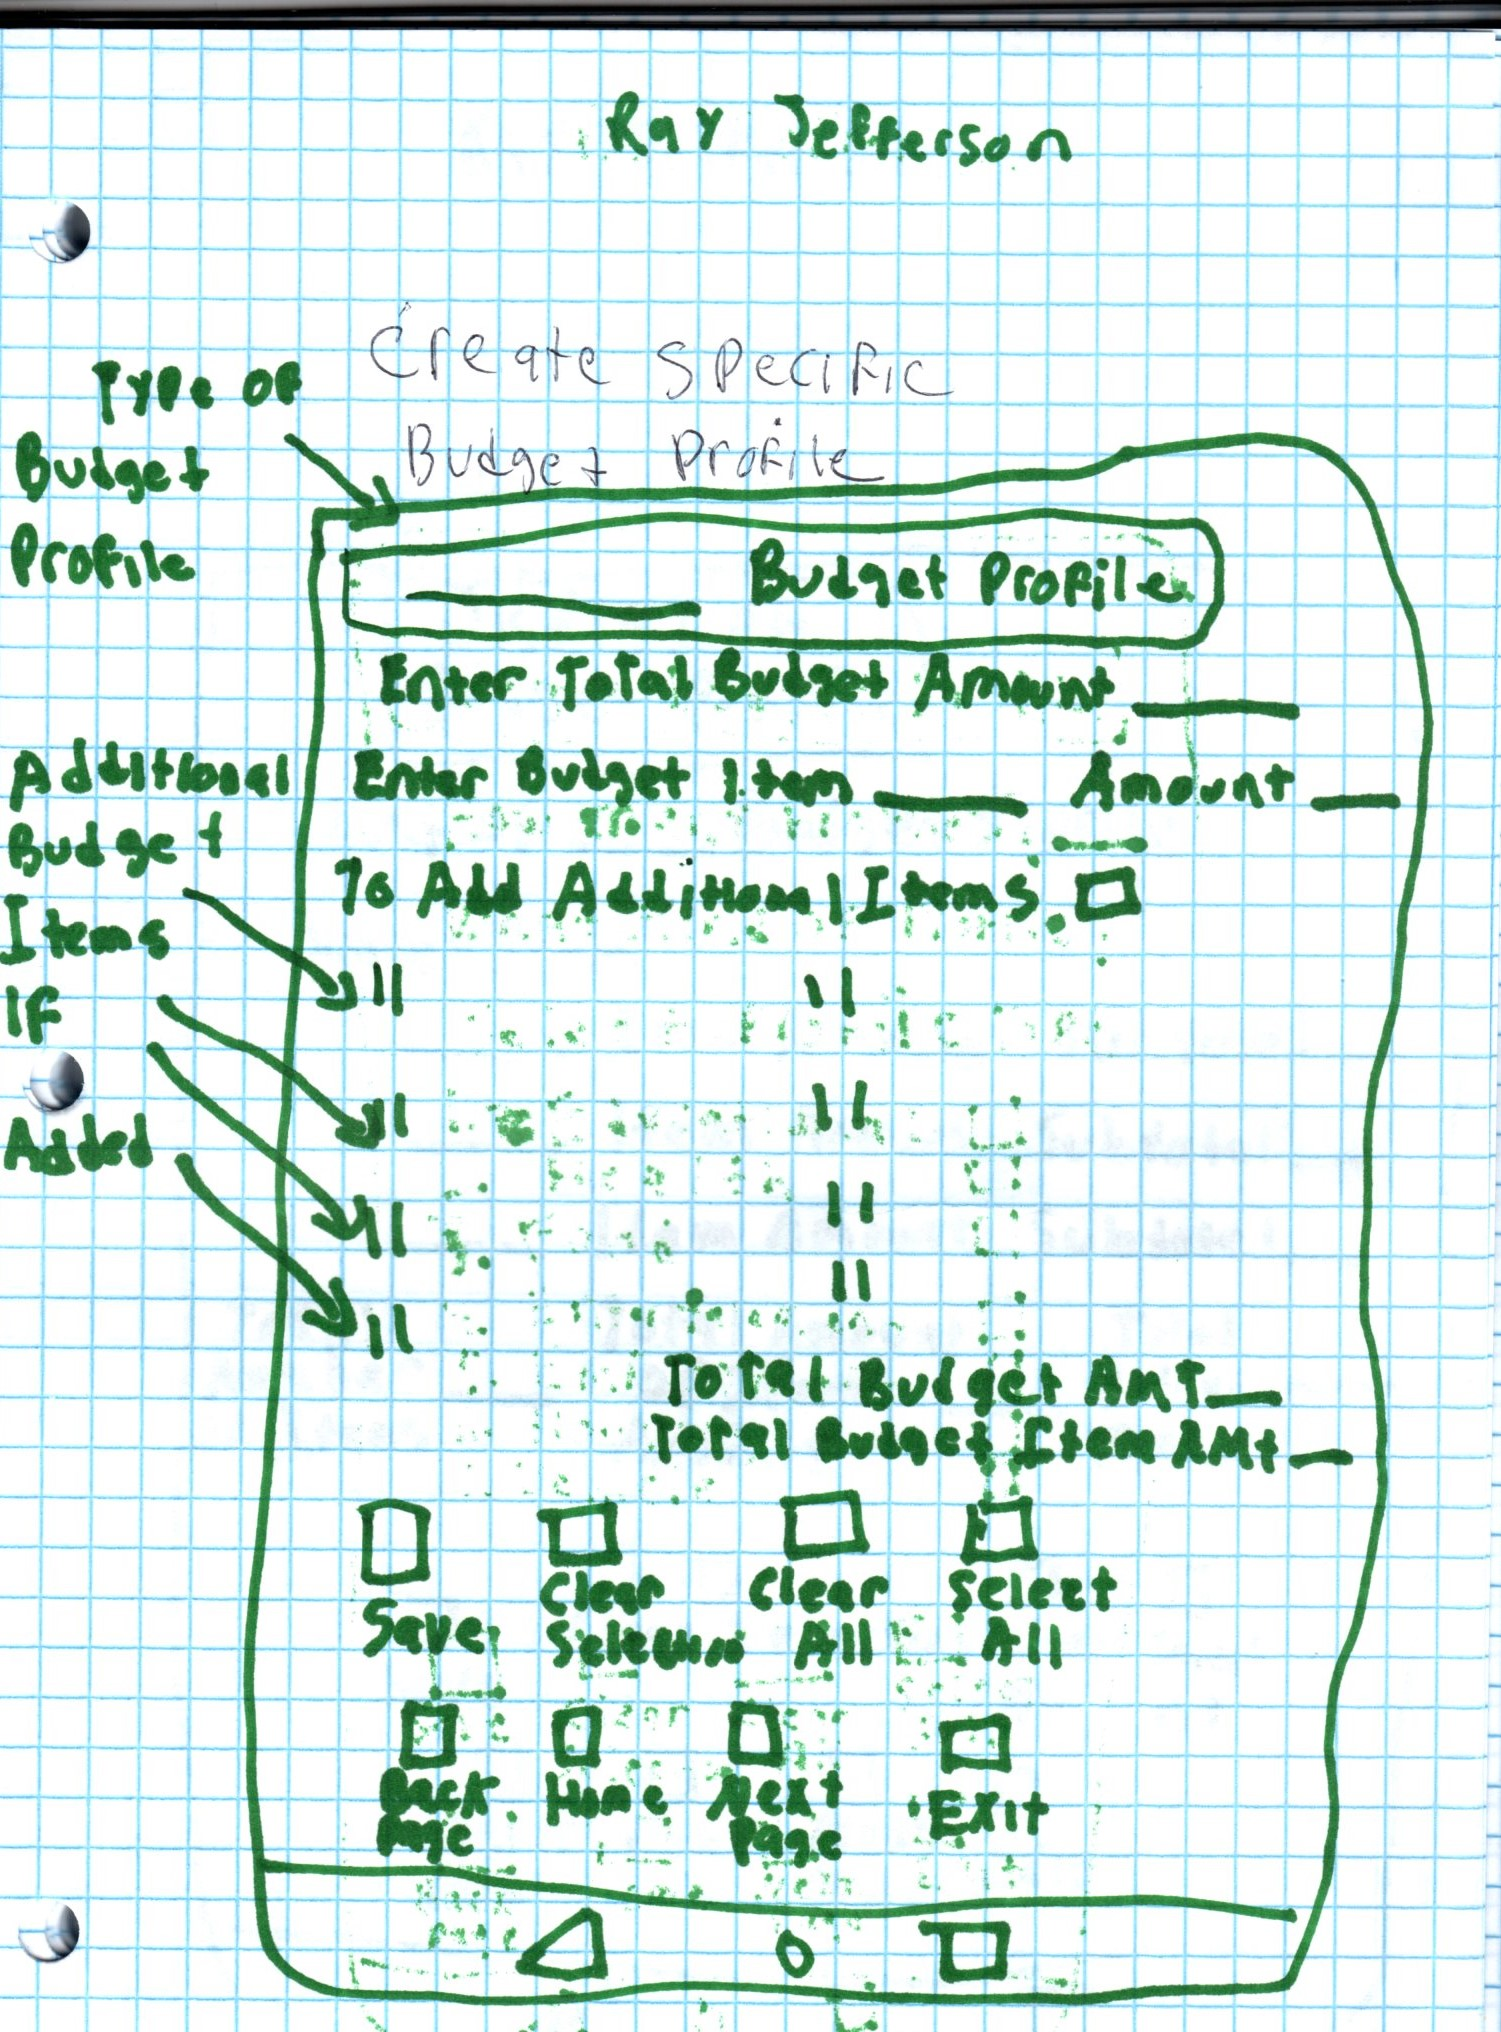 Ray Jefferson
Create Specific
Budget Profile
Type of
Budget
Profile
____ Budget Profile
Enter Total Budget Amount ____
Additional
Budget
Items
If
Added
Enter Budget Item ____ Amount ____
To Add Additional Items
" "
" "
" "
" "
Total Budget AMT __
Total Budget Item AMt __
Save
Clear
Selection
Clear
All
Select
All
Back
Page
Home
Next
Page
Exit